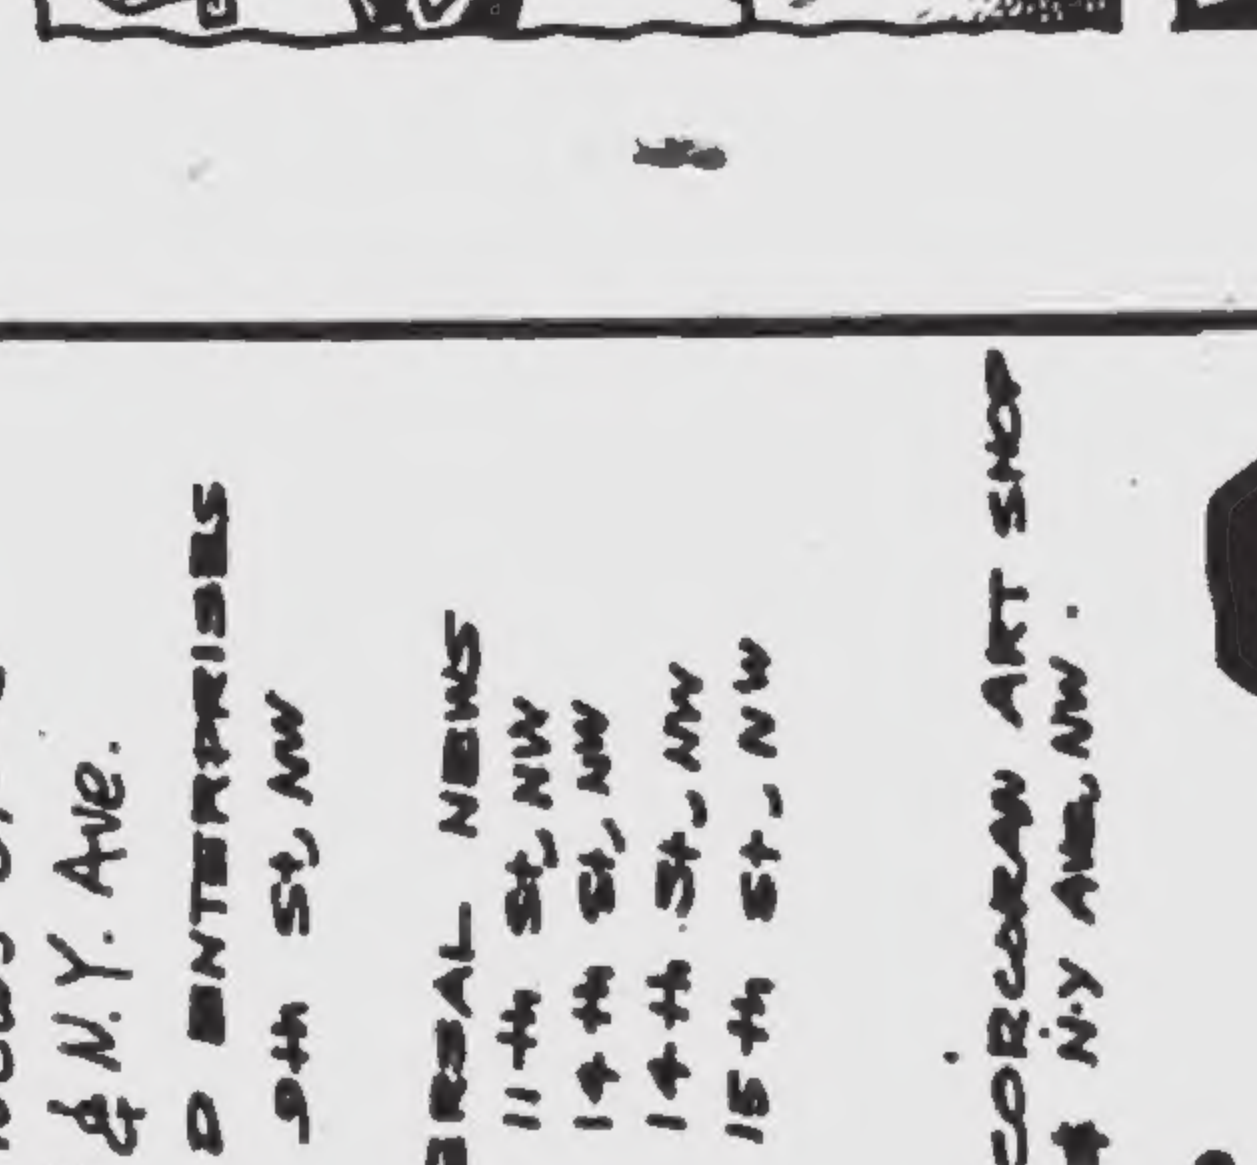 & N.Y. Ave.
D ENTERPRISES
9th St, NW
ERSAL NEWS
11th St, NW
14th St, NW
14th St, NW
15th St, NW
CORCORAN ART SHOP
N.Y AVE, NW.